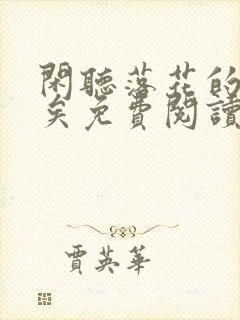 閑聽落花的
矣免費閱讀
賈英華